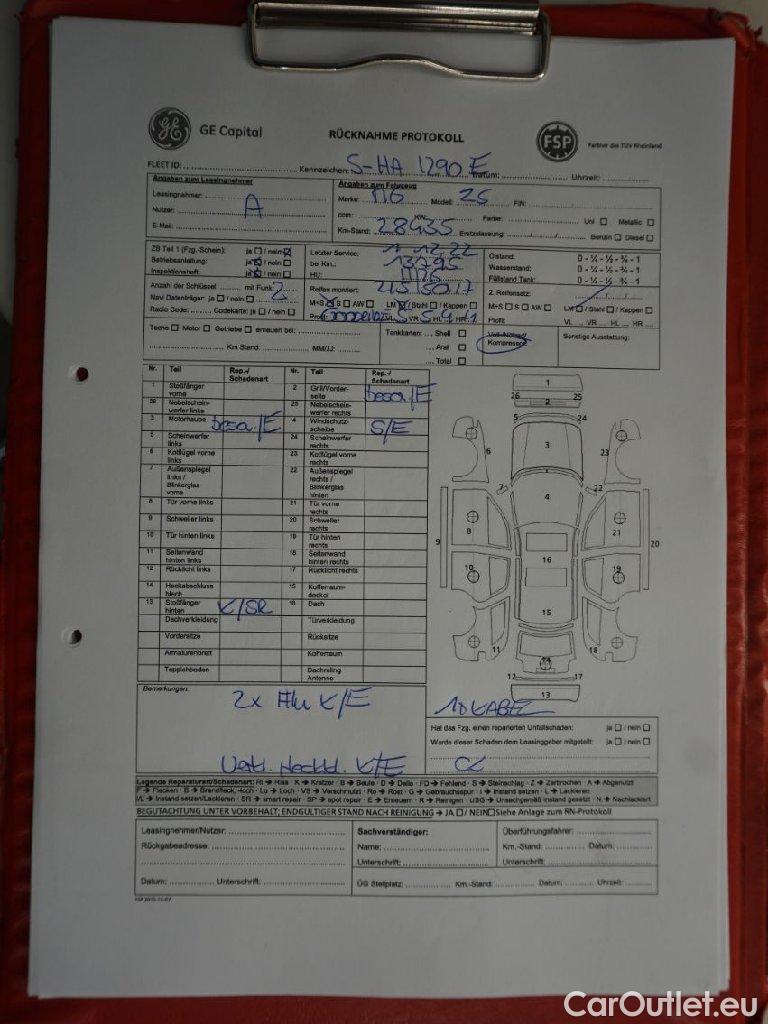 GE Capital
RÜCKNAHME PROTOKOLL
FSP
Partner des TÜV Rheinland
FLEET ID: Kennzeichen: S-HA 1290 E Datum: Uhrzeit:
Angaben zum Leasingnehmer
Leasingnehmer:
Nutzer: A
E-Mail:
Angaben zum Fahrzeug
Marke: MG Model: ZS FIN:
ccm: KW: Farbe: Uni Metallic
Km-Stand: 28435 Erstzulassung: Benzin Diesel
ZB Teil 1 (Fzg.-Schein): ja / nein
Betriebsanleitung: ja / nein
Inspektionsheft: ja / nein
Letzter Service: 1 12.22
bei Km.: 13795
HU:
Ölstand: 0 - ¼ - ½ - ¾ - 1
Wasserstand: 0 - ¼ - ½ - ¾ - 1
Füllstand Tank: 0 - ¼ - ½ - ¾ - 1
Anzahl der Schlüssel mit Funk 2
Navi Datenträger: ja / nein
Radio Code: Codekarte: ja / nein
Reifen montiert: 215 50 17
M+S S AW LM / Stahl / Kappen
Profil: VL 5 VR 5 HL 4 HR 4
2. Reifensatz:
M+S S AW LM / Stahl / Kappen
Profil VL VR HL HR
Tacho Motor Getriebe erneuert bei:
Km Stand: MM/JJ:
Tankkarten: Shell
Aral
Total
Kompressor
Sonstige Ausstattung:
Nr. Teil Rep./Schadenart Nr. Teil Rep./Schadenart
1 Stoßfänger vorne 2 Grill/Vorderseite besch/E
26 Nebelscheinwerfer links 25 Nebelscheinwerfer rechts
3 Motorhaube besch/E 4 Windschutzscheibe S/E
5 Scheinwerfer links 24 Scheinwerfer rechts
6 Kotflügel vorne links 23 Kotflügel vorne rechts
7 Außenspiegel links / Blinkerglas vorne 22 Außenspiegel rechts / Blinkerglas hinten
8 Tür vorne links 21 Tür vorne rechts
9 Schweller links 20 Schweller rechts
10 Tür hinten links 19 Tür hinten rechts
11 Seitenwand hinten links 18 Seitenwand hinten rechts
12 Rücklicht links 17 Rücklicht rechts
14 Heckabschlussblech 15 Kofferraumdeckel
13 Stoßfänger hinten K/SR 16 Dach
Dachverkleidung Türverkleidung
Vordersitze Rücksitze
Armaturenbrett Kofferraum
Teppichboden Dachreling Antenne
1
2
26 25
5 24
3
6 23
7 22
4
8 21
9 20
16
10 19
15
11 18
14
12 17
13
Bemerkungen:
2x K/E
K/E
KABEL
Hat das Fzg. einen reparierten Unfallschaden: ja / nein
Wurde dieser Schaden dem Leasinggeber mitgeteilt: ja / nein
Legende Reparaturen/Schadenart: Ri → Riss - K → Kratzer - B → Beule - D → Delle - FD → Fehlend - S → Steinschlag - Z → Zerbrochen - A → Abgenutzt
F → Flecken - B → Brandfleck,-loch - Lo → Loch - VS → Verschmutzt - Ro → Rost - G → Gebrauchsspur - I → Instand setzen - L → Lackieren
I/L → Instand setzen/Lackieren - SR → smart repair - SP → spot repair - E → Erneuern - R → Reinigen - USG → Unsachgemäß instand gesetzt - N → Nachlackiert
BEGUTACHTUNG UNTER VORBEHALT; ENDGÜLTIGER STAND NACH REINIGUNG → JA / NEIN Siehe Anlage zum RN-Protokoll
Leasingnehmer/Nutzer:
Rückgabeadresse:
Datum: Unterschrift:
Sachverständiger:
Name:
Unterschrift:
Überführungsfahrer:
Km.-Stand: Datum:
Unterschrift:
ÜG Stellplatz: Km.-Stand: Datum: Uhrzeit:
CarOutlet.eu